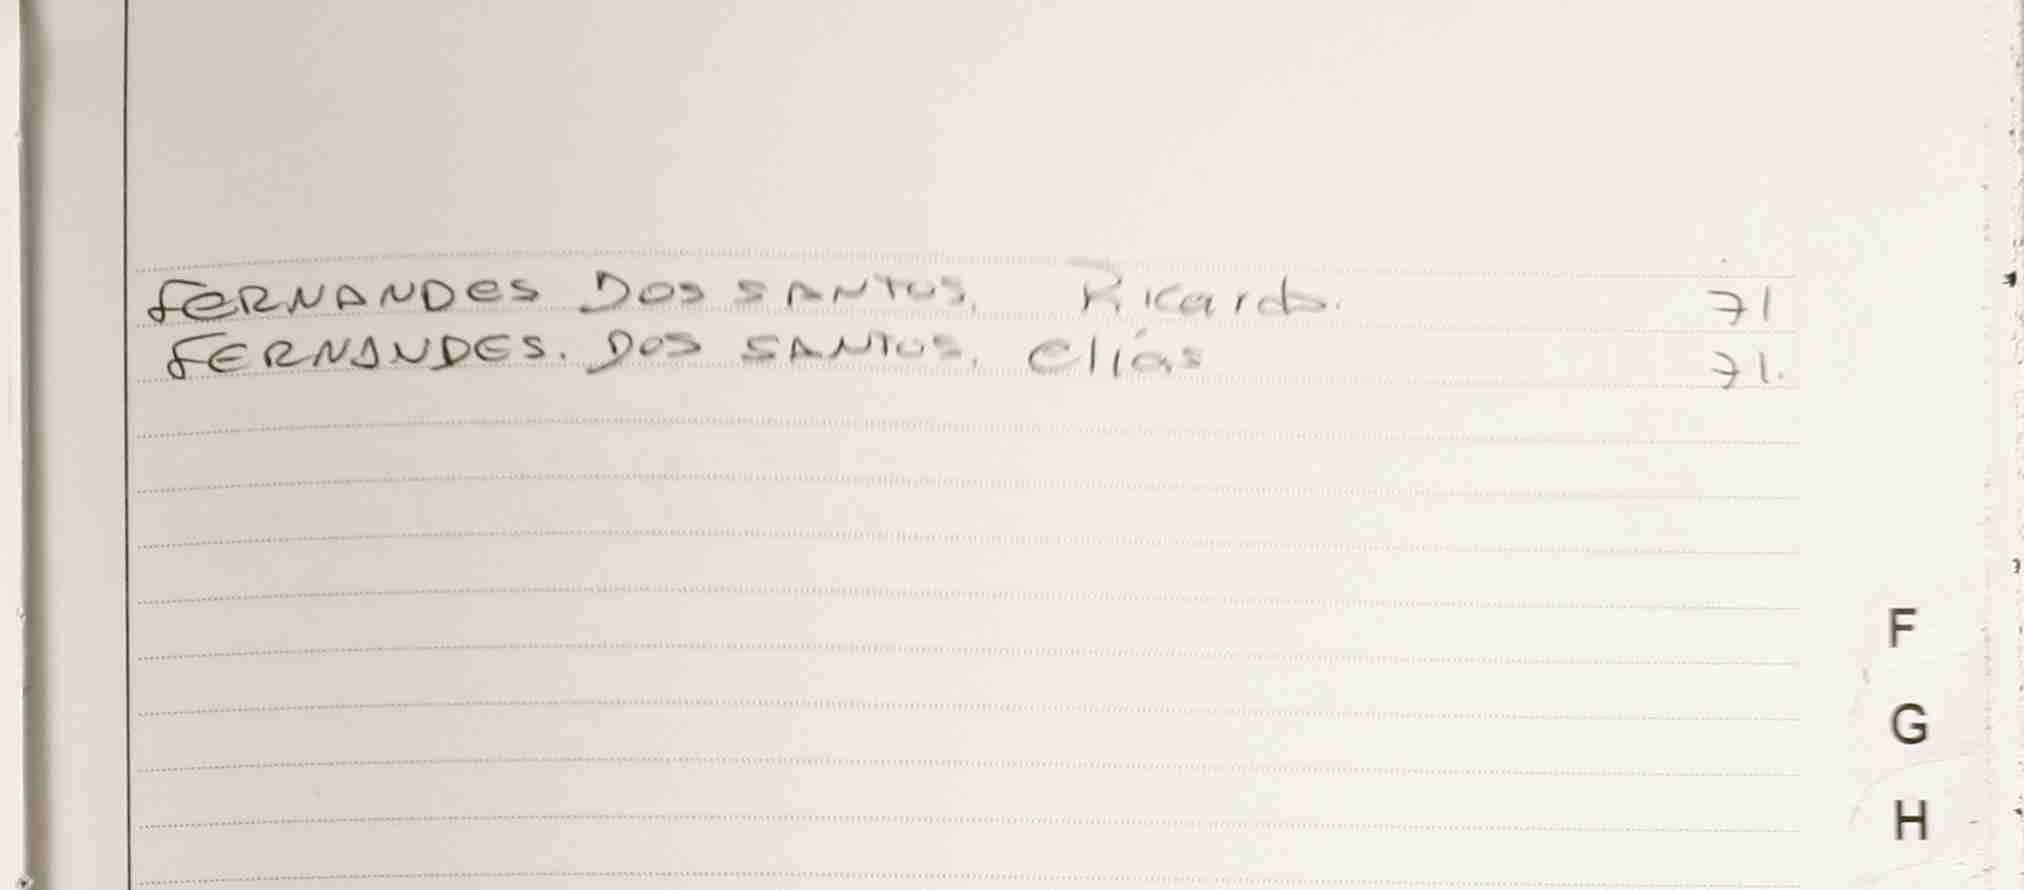 FERNANDES DOS SANTOS, Ricardo.    71
FERNANDES. DOS SANTOS, Elías    71.
F
G
H